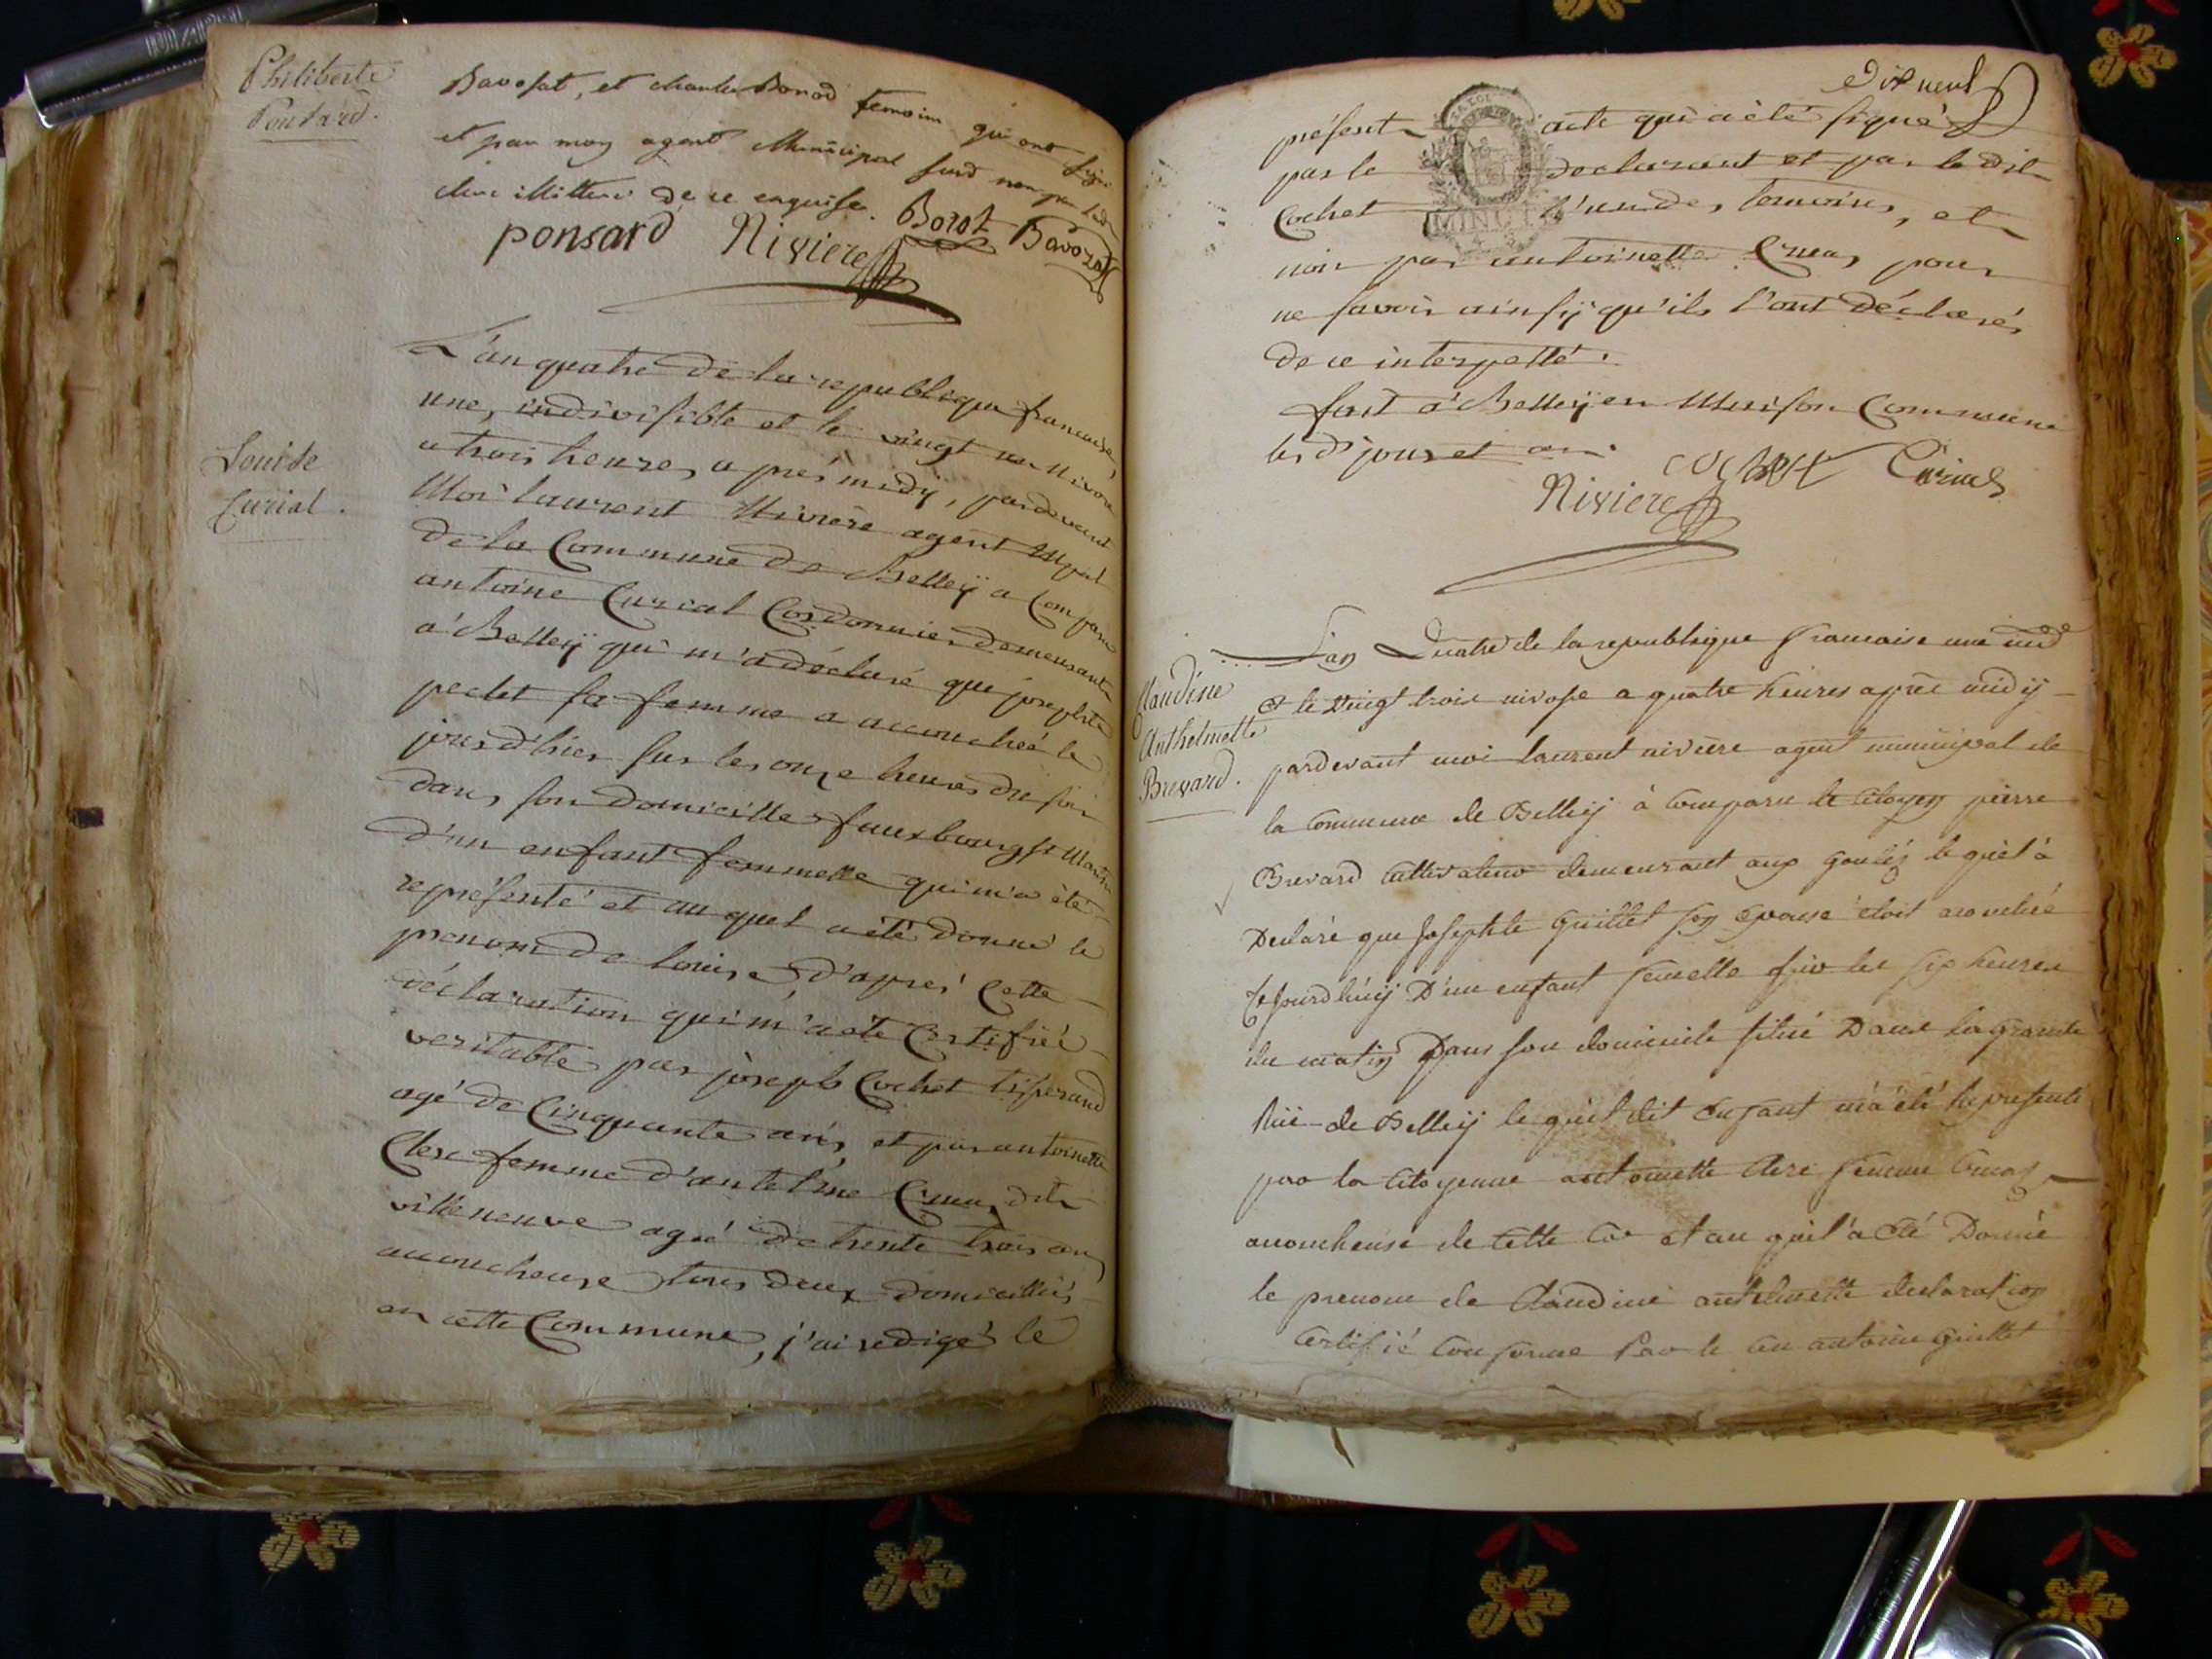 Philiberte
Ponsard.
Bavosat, et charles Borod temoins qui ont signé
et par moy agent Municipal susd non par lad
clerc illitteré de ce enquise.
ponsard Niviere Borot Bavozat
Louise
Curial.
L'an quatre de la republique francaise,
une, indivisible et le vingt un Nivose
a trois heures, apres midÿ, pardevant
Moi laurent Niviere agent Mpal
de la Commune de Belleÿ a Comparu
antoine Curial Cordonnier demeurant
a Belleÿ qui m'a déclaré que josephte
pochet sa femme a accouchée le
jour d'hier sur les onze heures du soir
dans son domicille fauxbourg st Martin
d'un enfant femmelle qui m'a été
représenté et au quel a été donné le
prenom de louise, d'aprés Cette
déclaration qui m'a été Certifiée
veritable par joseph Cochet tisserand
agé de Cinquante ans, et par antoinette
Clerc femme d'antelme Cruas dit
villeneuve agée de trente trois ans
accoucheuse tous deux domicilliés
en cette Commune, j'ai redigé le
Dix neuf
présent acte qui a été signé
par le declarant et par le dit
Cochet l'un des temoins, et
non par antoinette Cruas pour
ne savoir ainsÿ qu'ils l'ont déclarés
de ce interpellé.
fait a Belleÿ en Maison Commune
les d jour et an.
cochet Curial
Niviere
Claudine
Anthelmette
Brevard.
L'an Quatre de la republique francaise une ind
et le vingt trois nivose a quatre heures aprèe midij
pardevant moi laurent nivière agent municipal de
la Commune de Bellïj à Comparu le Citoyen pierre
Brevard Cultivateur demeurant aux lequel à
Declaré que Josephte Guillet son epouse étoit accouchée
Cejourd'huij D'un enfant femelle sur les six heures
du matin Dans son domicile situé Dans la grande
Rüe de Bellïj lequel dit Enfant m'à été Representé
par la Citoyenne antoinette Clerc femme Cruas
accoucheuse de Cette Cne et au quel à été Donné
le prenom de Claudine antelmette declaration
Certifié Conforme Par le Cen antoine Guillet